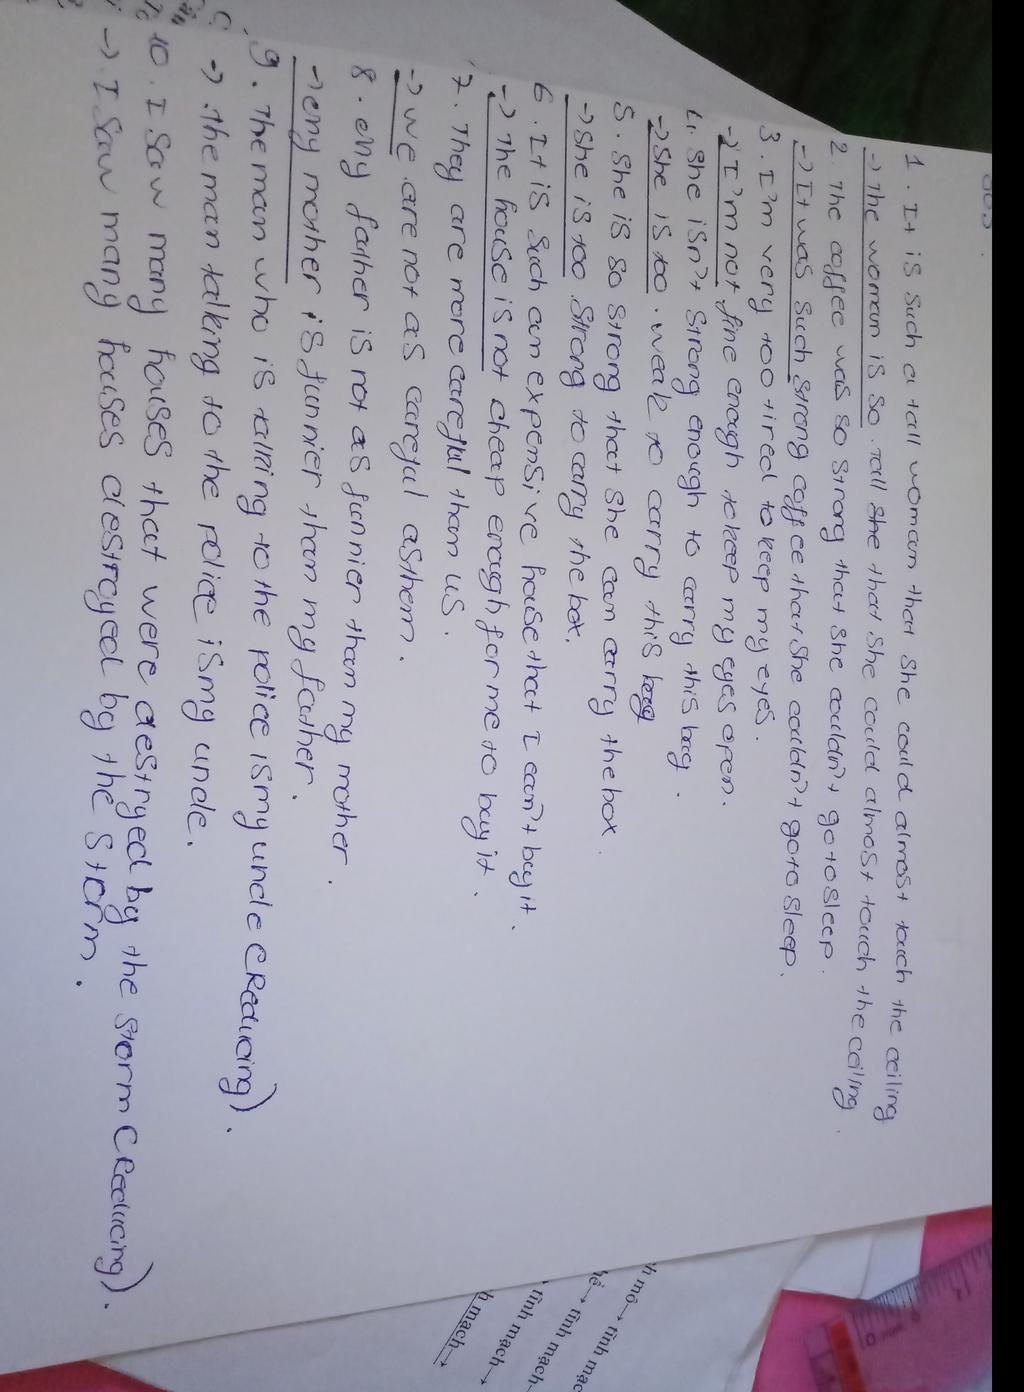 1. It is such a tall woman that she could almost touch the ceiling
→ the woman is so. tall she that she could almost touch the ceiling.
2. the coffee was so strong that she couldn't go to sleep.
→ It was such strong coffee that she couldn't go to sleep.
3. I'm very too tired to keep my eyes.
→ I'm not fine enough to keep my eyes open.
4. she isn't strong enough to carry this bag.
→ she is too. weak to carry this bag
5. she is so strong that she can carry the box.
→ she is too strong to carry the box.
6. It is such an expensive house that I can't buy it.
→ the house is not cheap enough for me to buy it.
7. They are more careful than us.
→ we are not as careful as them.
8. my father is not as funnier than my mother.
→ my mother is funnier than my father.
9. The man who is talking to the police is my uncle (Reducing).
→ the man talking to the police is my uncle.
10. I saw many houses that were destryed by the storm (Reducing).
→ I saw many houses destroyed by the storm.
tĩnh mạch
tĩnh mạch
tĩnh mạch→
mạch→